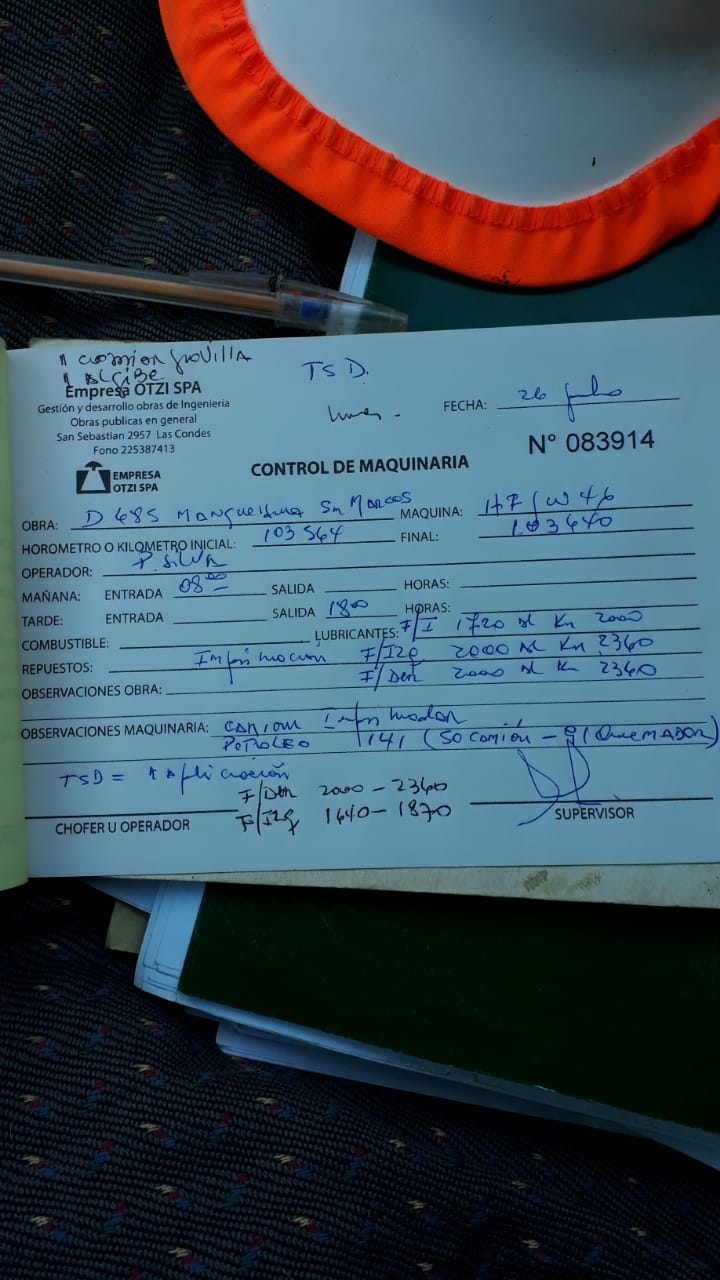 TSD.
Empresa OTZI SPA
Gestión y desarrollo obras de Ingeniería
Obras publicas en general
San Sebastian 2957 Las Condes
Fono 225387413
EMPRESA
OTZI SPA
FECHA: 26 Julio
N° 083914
CONTROL DE MAQUINARIA
OBRA: D 485 Sn Marcos MAQUINA:
HOROMETRO O KILOMETRO INICIAL: 103564 FINAL: 103640
OPERADOR: P. SILVA
MAÑANA: ENTRADA 08:00 SALIDA HORAS:
TARDE: ENTRADA SALIDA 1800 HORAS:
COMBUSTIBLE: LUBRICANTES: F/I 1720 al Km 2000
REPUESTOS: Imprimacion F/Izq 2000 al Km 2360
F/Der 2000 al Km 2360
OBSERVACIONES OBRA:
OBSERVACIONES MAQUINARIA: CAMION Imprimador
PETROLEO 141 (50 Camión - 91 QUEMADOR)
TSD = 1 Aplicación
F/Der 2000 - 2360
F/Izq 1640 - 1870
CHOFER U OPERADOR
SUPERVISOR